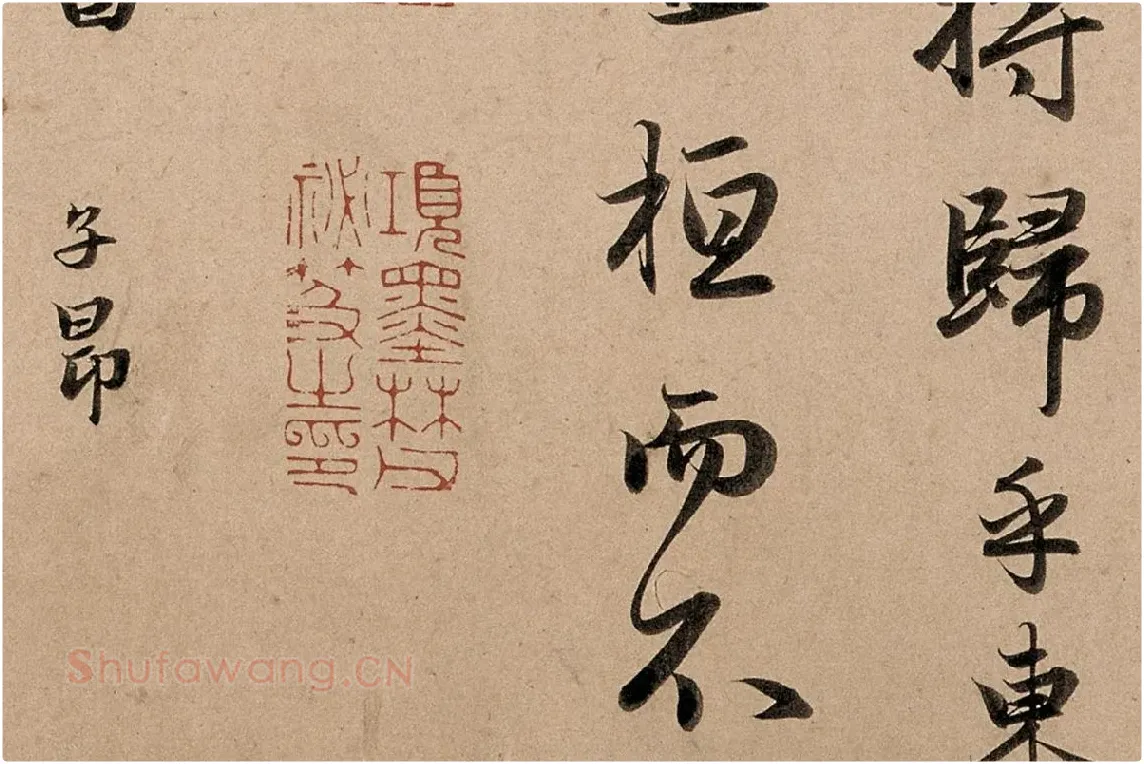 將歸乎東
桓而不
項墨林父
祕笈之印
子昂
Shufawang.CN